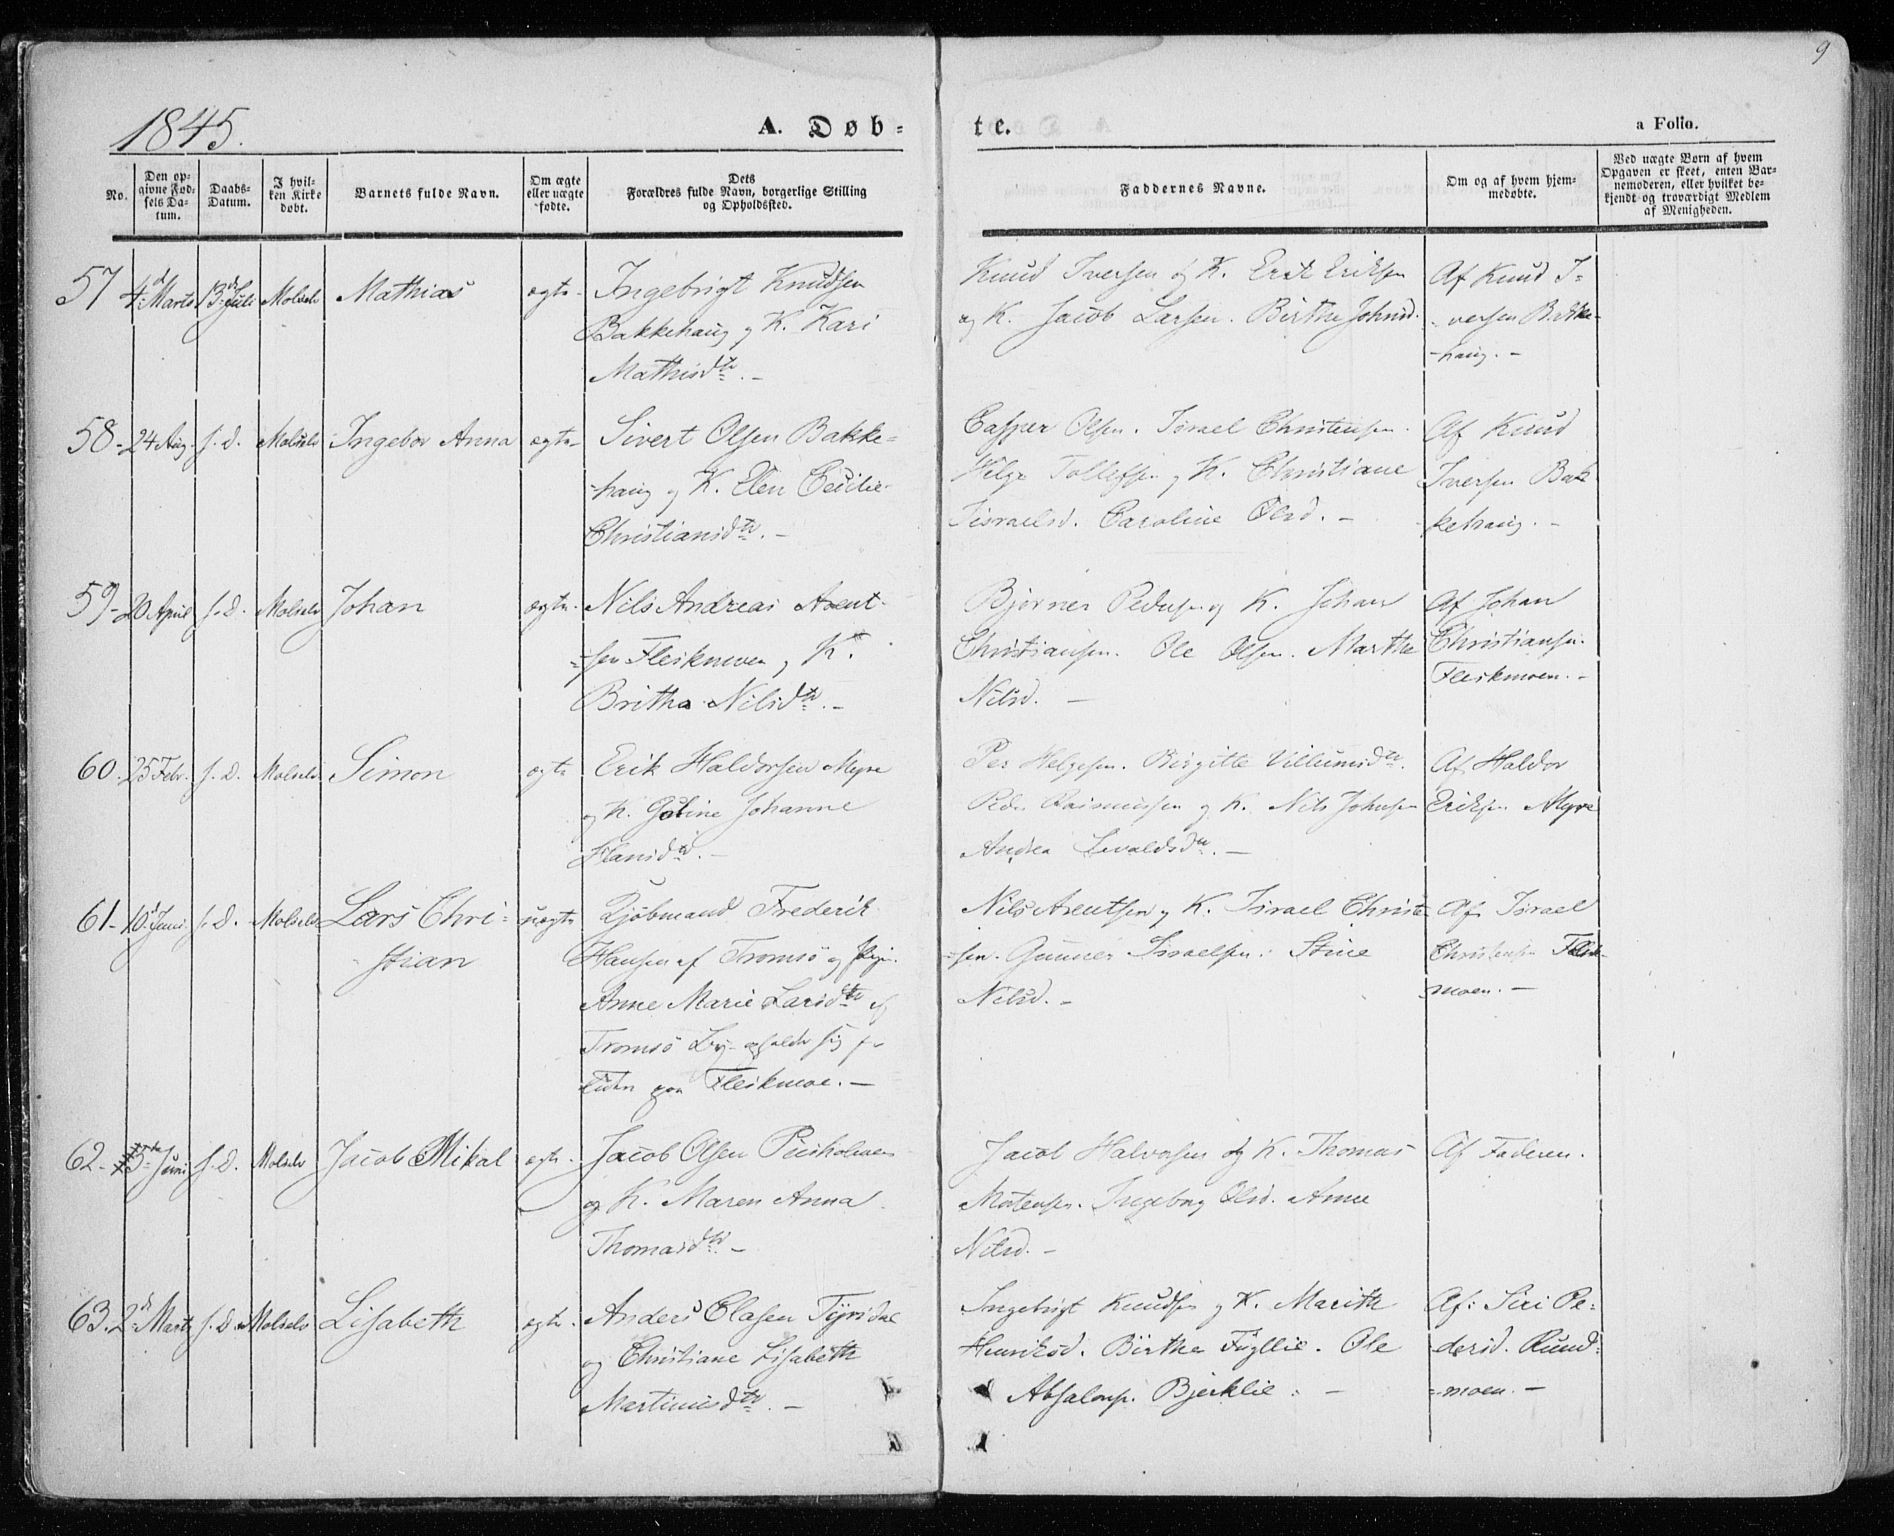 9
1845.
A. Døb-
te.
a Folio.
No.
Den op-
givne Fød-
sels Da-
tum.
Daabs-
Datum.
I hvil-
ken Kirke
døbt.
Barnets fulde Navn.
Om ægte
eller uægte
fødte.
Dets
Forældres fulde Navn, borgerlige Stilling
og Opholdssted.
Faddernes Navne.
Om og af hvem hjem-
medøbte.
Ved uægte Børn af hvem
Opgaven er skeet, enten Bar-
nemoderen, eller hvilket be-
kjendt og troværdigt Medlem
af Menigheden.
57 4d Marts 13d Juli Molselv Mathias ægte
Ingebrigt Knudsen
Bakkehaug og K. Kari
Mathisdtr. -
Knud Iversen og K. Erik Eriksen
og K. Jacob Larsen. Birthe Johnsd.
Af Knud I-
versen Bakke-
haug. -
58- 24 Aug. s. d. Molselv Ingebor Anna ægte
Sivert Olsen Bakke-
haug og K. Elen Cecilie
Christiansdtr. -
Casper Olsen. Israel Christensen.
Helge Tollefsen og K. Christiane
Israelsd. Caroline Olsd. -
Af Knud
Iversen Bak-
kehaug. -
59- 20 April s. d. Molselv Johan ægte
Nils Andreas Arent-
sen Fleskmoen og K.
Britha Nilsdtr. -
Bjørner Pedersen og K. Johan
Christiansen. Ole Olsen. Marthe
Nilsd. -
Af Johan
Christiansen
Fleskmoen. -
60. 25 Febr. s. d. Molselv Simon ægte
Erik Haldorsen Myre
og K. Johanne
Hansdtr. -
Per Helgesen. Birgitte Villumsdtr.
Peder Rasmussen og K. Nils Johnsen
Andrea
Af Haldor
Eriksen Myre
61- 10d Juni s. d. Molselv Lars Chri-
stian
uægte
Kjøbmand Frederik
Hansen af Tromsø og Pige
Anne Marie Larsdtr af
Tromsø By opholder sig for
Tiden paa Fleskmoe. -
Nils Arentsen og K. Israel Christen-
sen. Gunner Israelsen. Stine
Nilsd. -
Af Israel
Christensen Flesk-
moen. -
62- 5te Juni s. d. Molselv Jacob Mikal ægte
Jacob Olsen
og K. Maren Anna
Thomasdtr -
Jacob Halvorsen og K. Thomas
Mortensen. Ingeborg Olsd. Anne
Nilsd. -
Af Faderen.
63. 2d Marts s. d. Molselv Lisabeth ægte
Anders Olasen
og Christiane Lisabeth
Martinusdtr. -
Ingebrigt Knudsen og K. Marith
Henriksd. Birthe Fugllie. Ole
Absalons. Bjerklie. -
Af: Siri Pe-
dersd. Rund-
moen. -